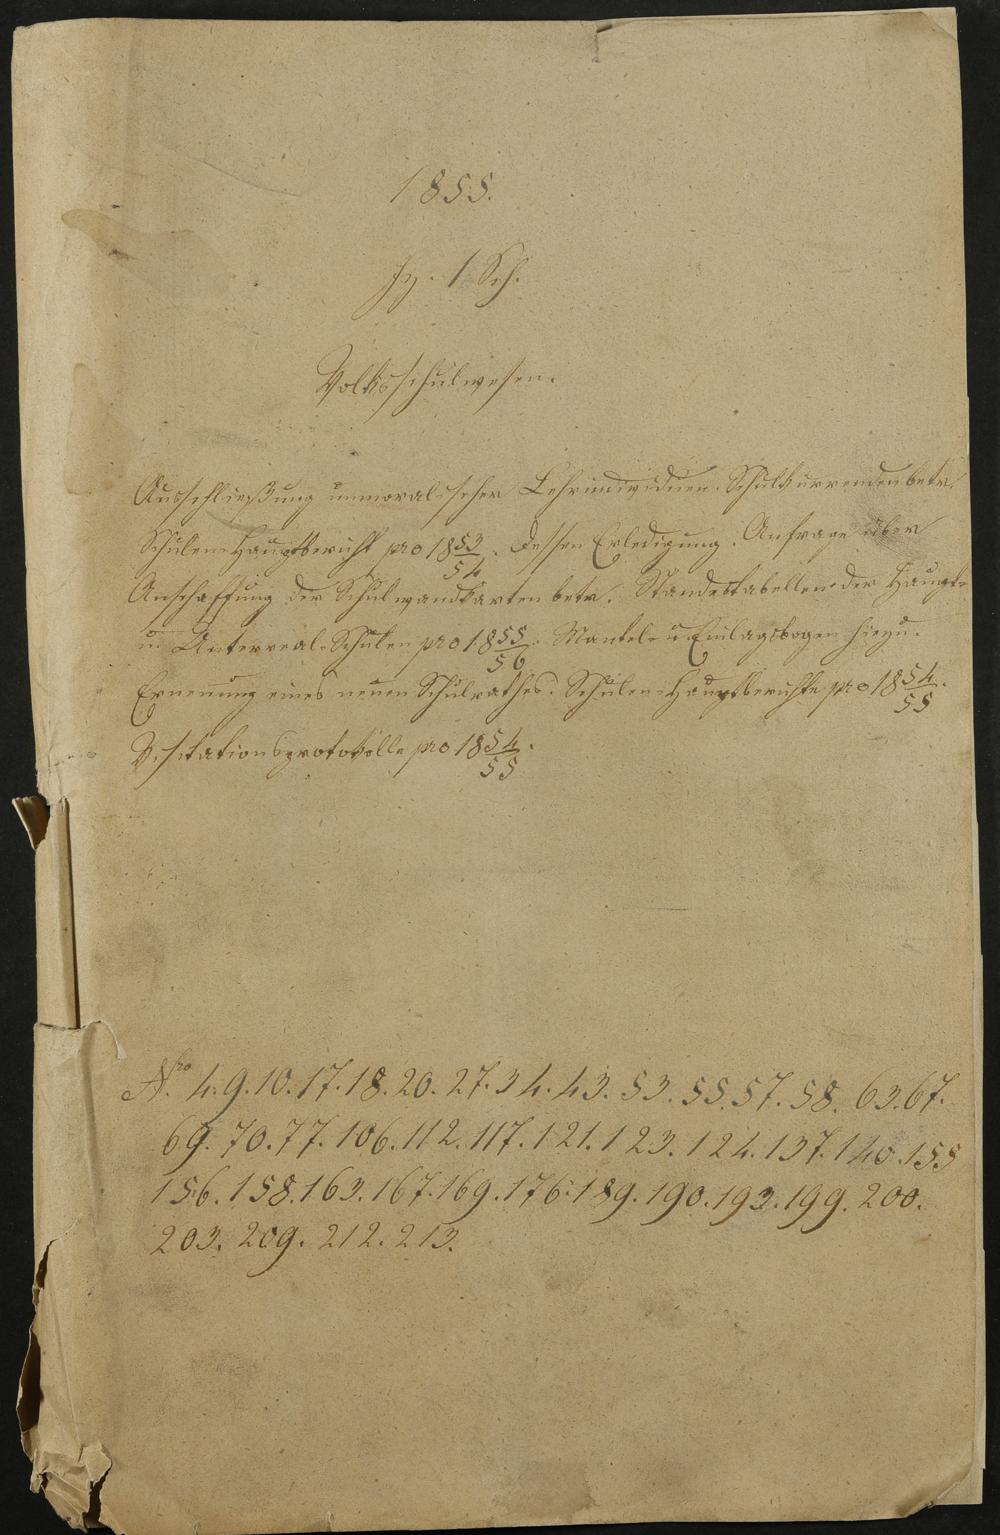 1855.
Fz. 1 Sch.
Volksschulwesen.
Ausschließung unmoralischer Lehrindividuen. Schulkurrenden betr.
Schulen-Hauptbericht pro 1853/54. Dessen Erledigung. Anfrage über
Anschaffung der Schulwandkarten betr. Standestabellen der Haupt-
u Unterreal-Schulen pro 1855/56. Mantel- u. Einlagsbogen hiezu.
Ernennung eines neuen Schulrathes. Schulen-Hauptberichte pro 1854/55.
Visitationsprotokolle pro 1854/55.
Nro 4. 9. 10. 17. 18. 20. 27. 34. 43. 53. 55. 57. 58. 63. 67.
69. 70. 77. 106. 112. 117. 121. 123. 124. 137. 140. 155
156. 158. 163. 167. 169. 176. 189. 190. 193. 199. 200.
203. 209. 212. 213.